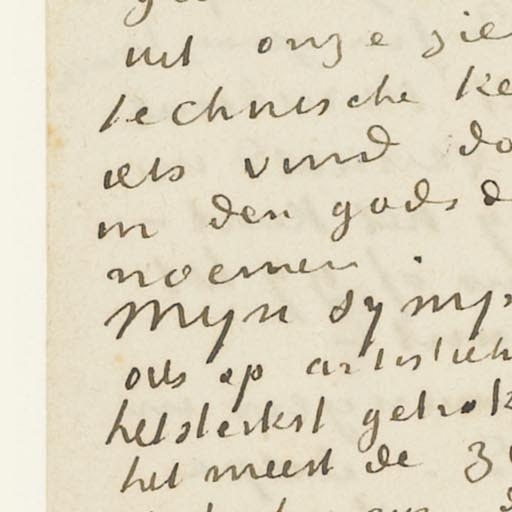 uit onze zie
technische ke
iets vind do
in den gods d
noemen.
Mijn symp
ook op artistiek
het sterkst getrok
het meest de z